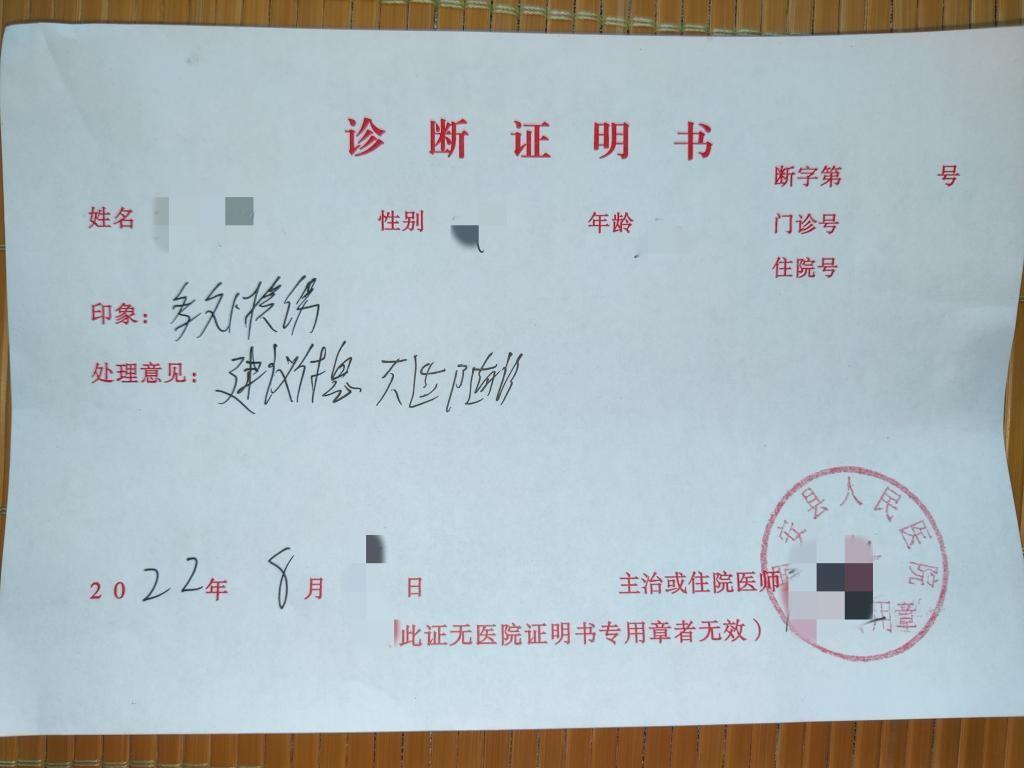 诊断证明书
断字第 号
姓名 性别 年龄 门诊号
住院号
印象：多处软组织挫伤
处理意见：建议休息 天 随诊
2022年 8月 日 主治或住院医师
此证无医院证明书专用章者无效）
安县人民医院
用章